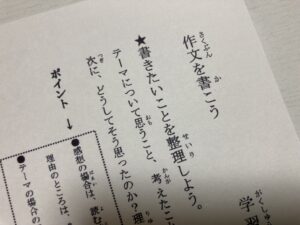 学習
作文を書こう
さくぶん か
★書きたいことを整理しよう。
せいり
テーマについて思うこと、考えたこ
おも かんが
次に、どうしてそう思ったのか?理
つぎ
ポイント →
●感想の場合は、読む
理由のところは、
●テーマの場合の